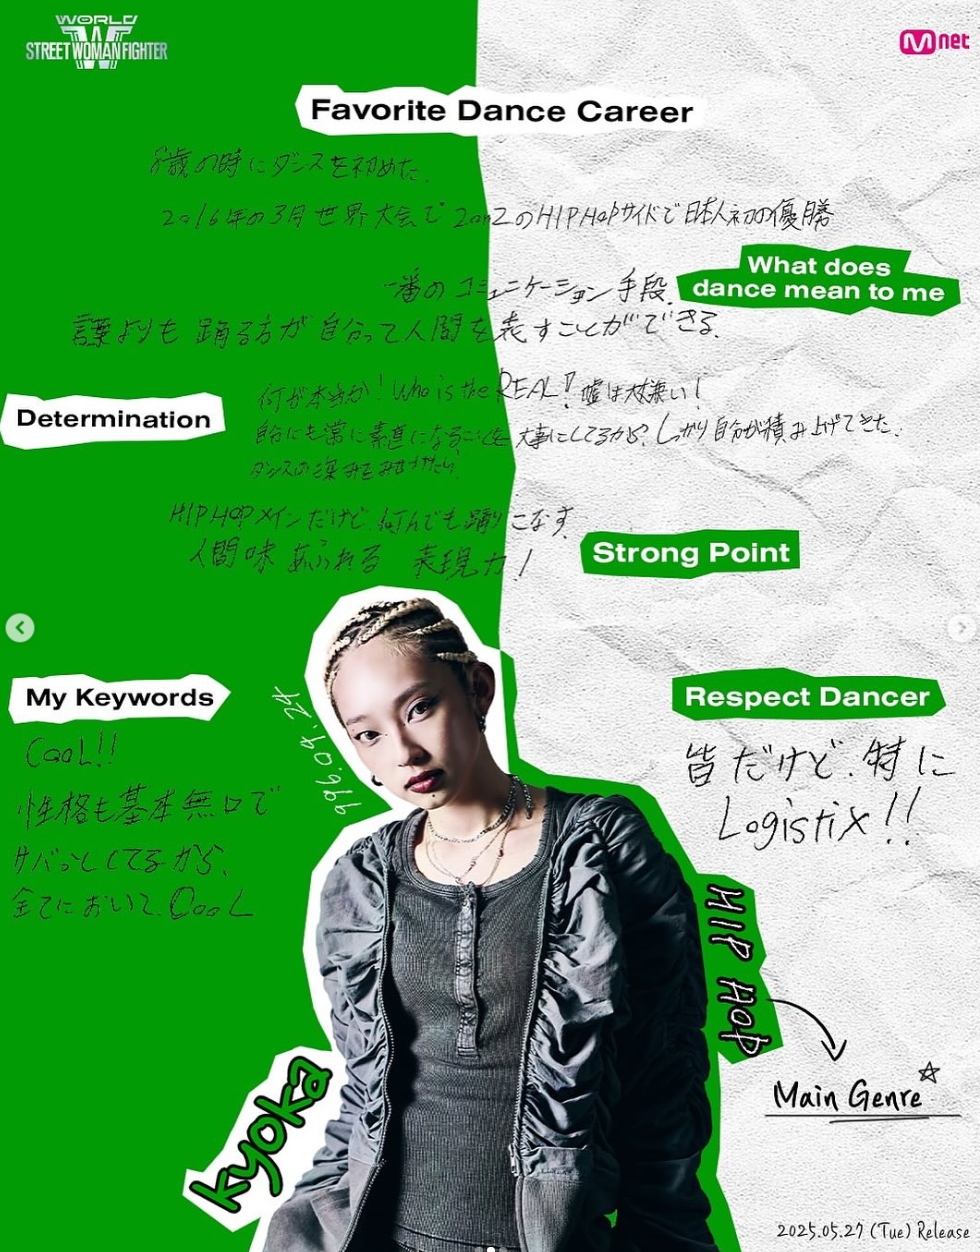 WORLD
W
STREET WOMAN FIGHTER
Mnet
Favorite Dance Career
8歳の時にダンスを初めた.
2016年の3月世界大会で2on2のHIPHOPサイドで日本人初の優勝
What does
dance mean to me
一番のコミュニケーション手段.
言葉よりも踊る方が自分って人間を表すことができる.
Determination
何が本当か! Who is the REAL!? 嘘は大嫌い!
自分にも常に素直になることを大事にしてるから、しっかり自分が積み上げてきた、
ダンスの深みをみせたい
HIPHOPメインだけど、何んでも踊りこなす
人間味あふれる 表現力!
Strong Point
My Keywords
COOL!!
性格も基本無口で
サバっとしてるから、
全てにおいて、COOL
996.09.24
Respect Dancer
皆だけど、特に
Logistix!!
HIP HOP
Main Genre☆
kyoka
2025.05.27 (Tue) Release